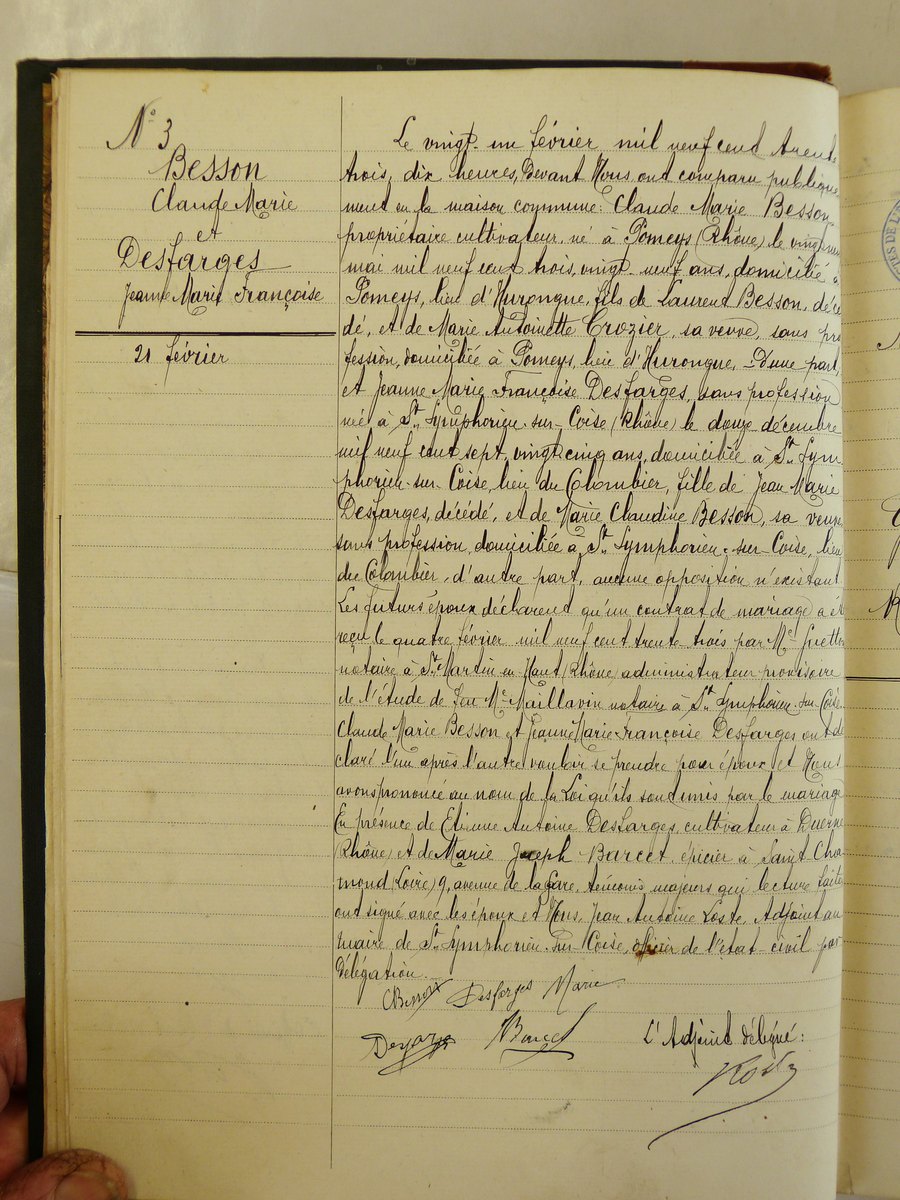 N° 3
Besson
Claude Marie
et
Desfarges
Jeanne Marie Françoise
21 février
Le vingt-un février mil neuf cent trente
trois, dix heures, Devant Nous ont comparu publique
ment en la maison commune: Claude Marie Besson
propriétaire cultivateur né à Pomeys (Rhône) le vingt
mai mil neuf cent trois, vingt-neuf ans, domicilié à
Pomeys, lieu d'Hurongue, fils de Laurent Besson, décé
dé, et de Marie Antoinette Crozier, sa veuve, sans pro
fession, domiciliée à Pomeys, lieu d'Hurongue, D'une part,
et Jeanne Marie Françoise Desfarges, sans profession
née à St Symphorien-sur-Coise (Rhône) le douze décembre
mil neuf cent sept, vingt cinq ans, domiciliée à St Sym
phorien-sur-Coise, lieu du Colombier, fille de Jean Marie
Desfarges, décédé, et de Marie Claudine Besson, sa veuve
sans profession, domiciliée à St Symphorien-sur-Coise, lieu
du Colombier, d'autre part, aucune opposition n'existant.
Les futurs époux déclarent qu'un contrat de mariage a été
reçu le quatre février mil neuf cent trente trois par Me
notaire à St Martin en Haut (Rhône) administrateur provisoire
de l'étude de feu Me Maillavin notaire à St Symphorien-sur-Coise
Claude Marie Besson et Jeanne Marie Françoise Desfarges ont dé
claré l'un après l'autre vouloir se prendre pour époux et Nous
avons prononcé au nom de la Loi qu'ils sont unis par le mariage
En présence de Etienne Antoine Desfarges, cultivateur à Duerne
(Rhône) et de Marie Joseph Barcet, épicier à Saint Cha
mond (Loire) 9, avenue de la Gare, témoins majeurs qui lecture faite
ont signé avec les époux et Nous, Jean Antoine Loste, Adjoint au
maire de St Symphorien-sur-Coise, officier de l'état-civil par
délégation.
CBesson Desfarges Marie
Barcet
L'Adjoint délégué:
Loste